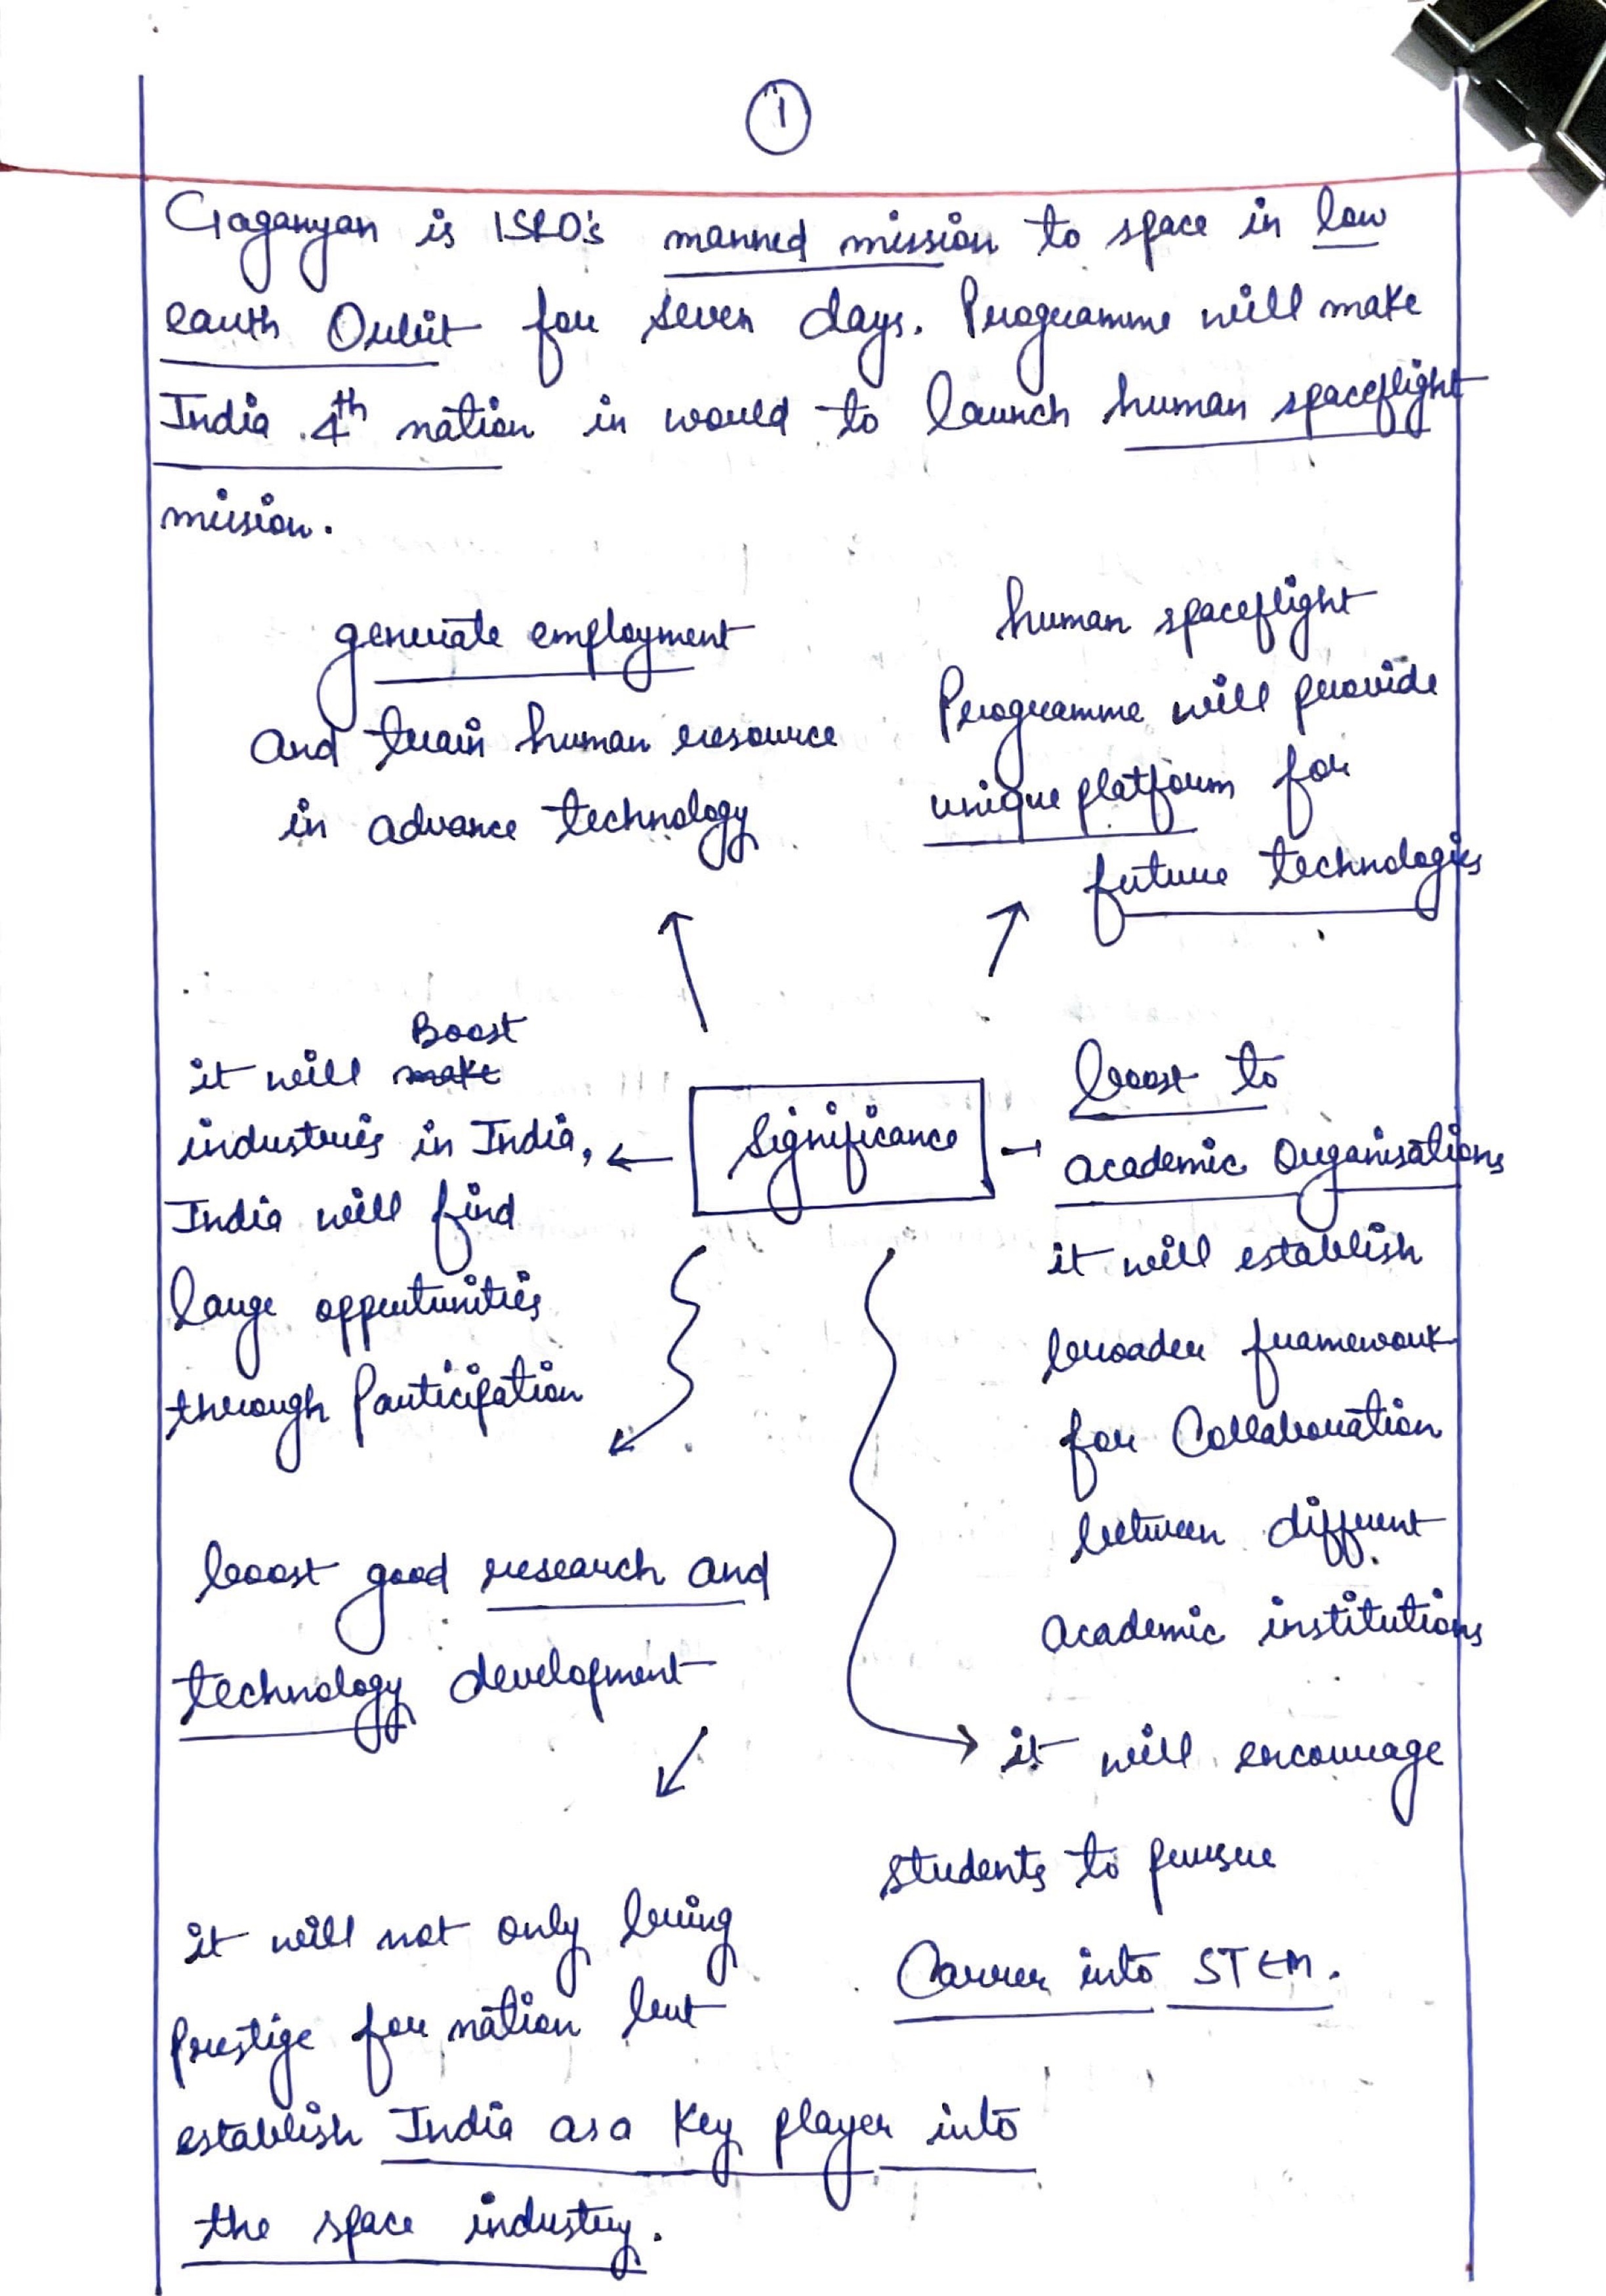 1
Gaganyan is ISRO's manned mission to space in low
earth Orbit for seven days. Programme will make
India 4th nation in would to launch human spaceflight
mission.
generate employment
and train human resource
in advance technology
human spaceflight
Programme will provide
unique platform for
future technologies
Boost
it will make
industries in India,
India will find
large opportunities
through Participation
Significance
boost to
academic Organisations
it will establish
broader framework
for Collaboration
between different
academic institutions
boost good research and
technology development
it will encourage
students to pursue
Carrer into STEM.
it will not only bring
prestige for nation but
establish India as a Key player into
the space industry.